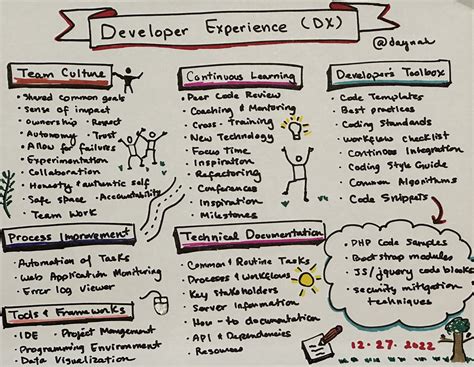 Developer Experience (DX)
@daynah
Team Culture
• Shared common goals
• Sense of impact
• Ownership • Respect
• Autonomy • Trust
• Allow for failures
• Experimentation
• Collaboration
• Honesty & authentic self
• Safe space • Accountability
• Team Work
Process Improvement
• Automation of Tasks
• Web Application Monitoring
• Error log Viewer
Tools & Frameworks
• IDE • Project Management
• Programming Environment
• Data Visualization
Continuous Learning
• Peer Code Review
• Coaching & Mentoring
• Cross-Training
• New Technology
• Focus Time
• Inspiration
• Refactoring
• Conferences
• Inspiration
• Milestones
Technical Documentation
• Common & Routine Tasks
• Processes & Workflows
• Key Stakeholders
• Server Information
• How-to documentation
• API & Dependencies
• Resources
Developer's Toolbox
• Code Templates
• Best practices
• Coding Standards
• Workflow checklist
• Continous Integration
• Coding Style Guide
• Common Algorithms
• Code Snippets
• PHP Code Samples
• Bootstrap modules
• JS/jquery code blocks
• security mitigation
techniques
12.27.2022